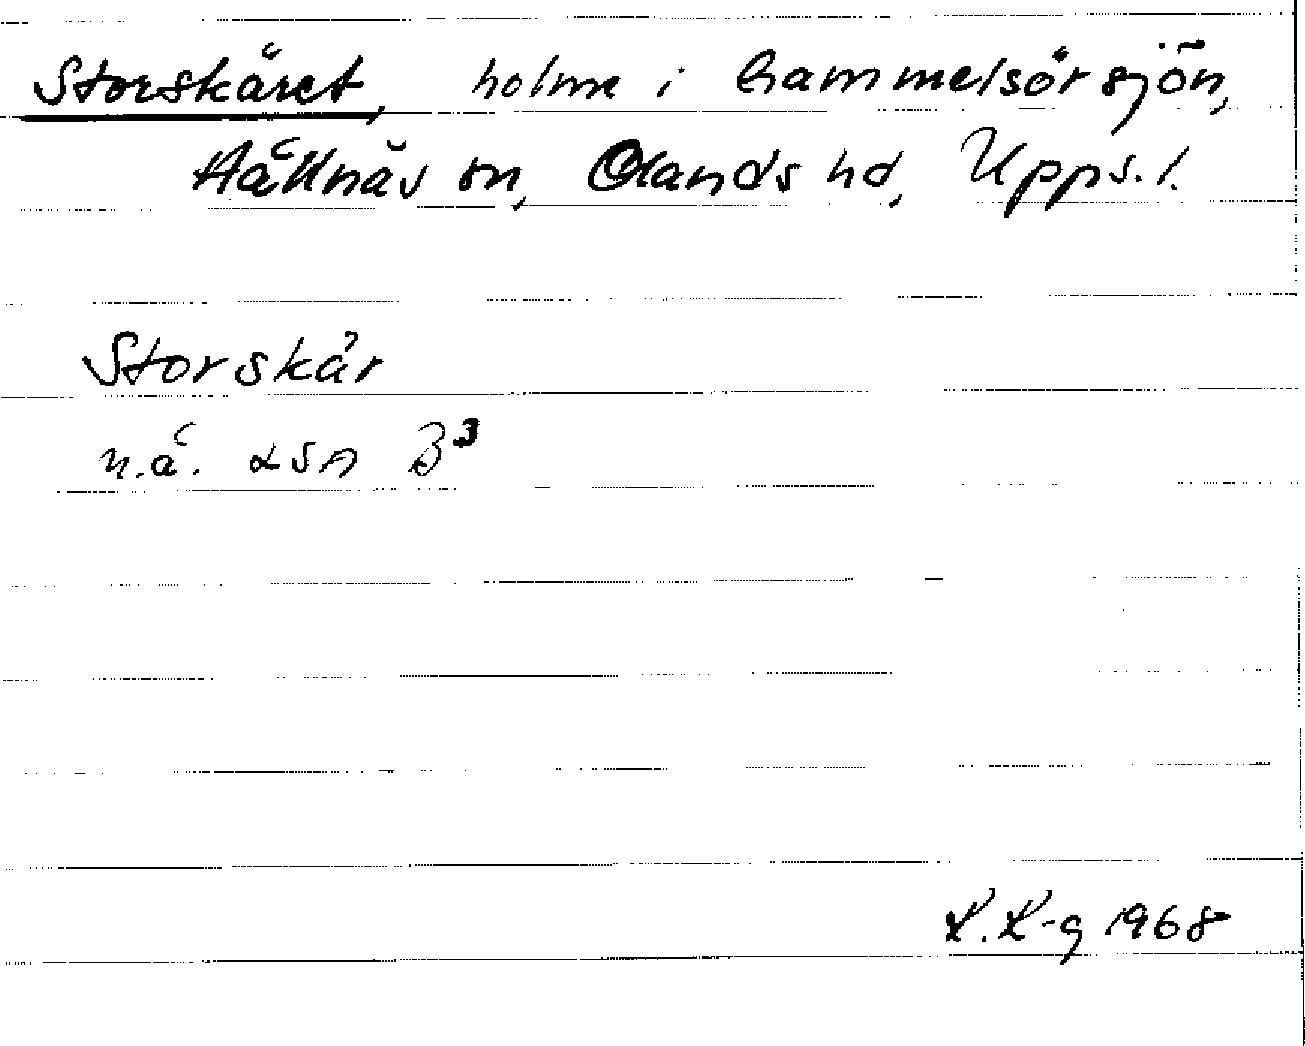 Storskäret, holme i Gammelsörsjön,
Hållnäs sn, Olands hd, Upps. l.
Storskär
n.å. LSA B³
K. K-g 1968